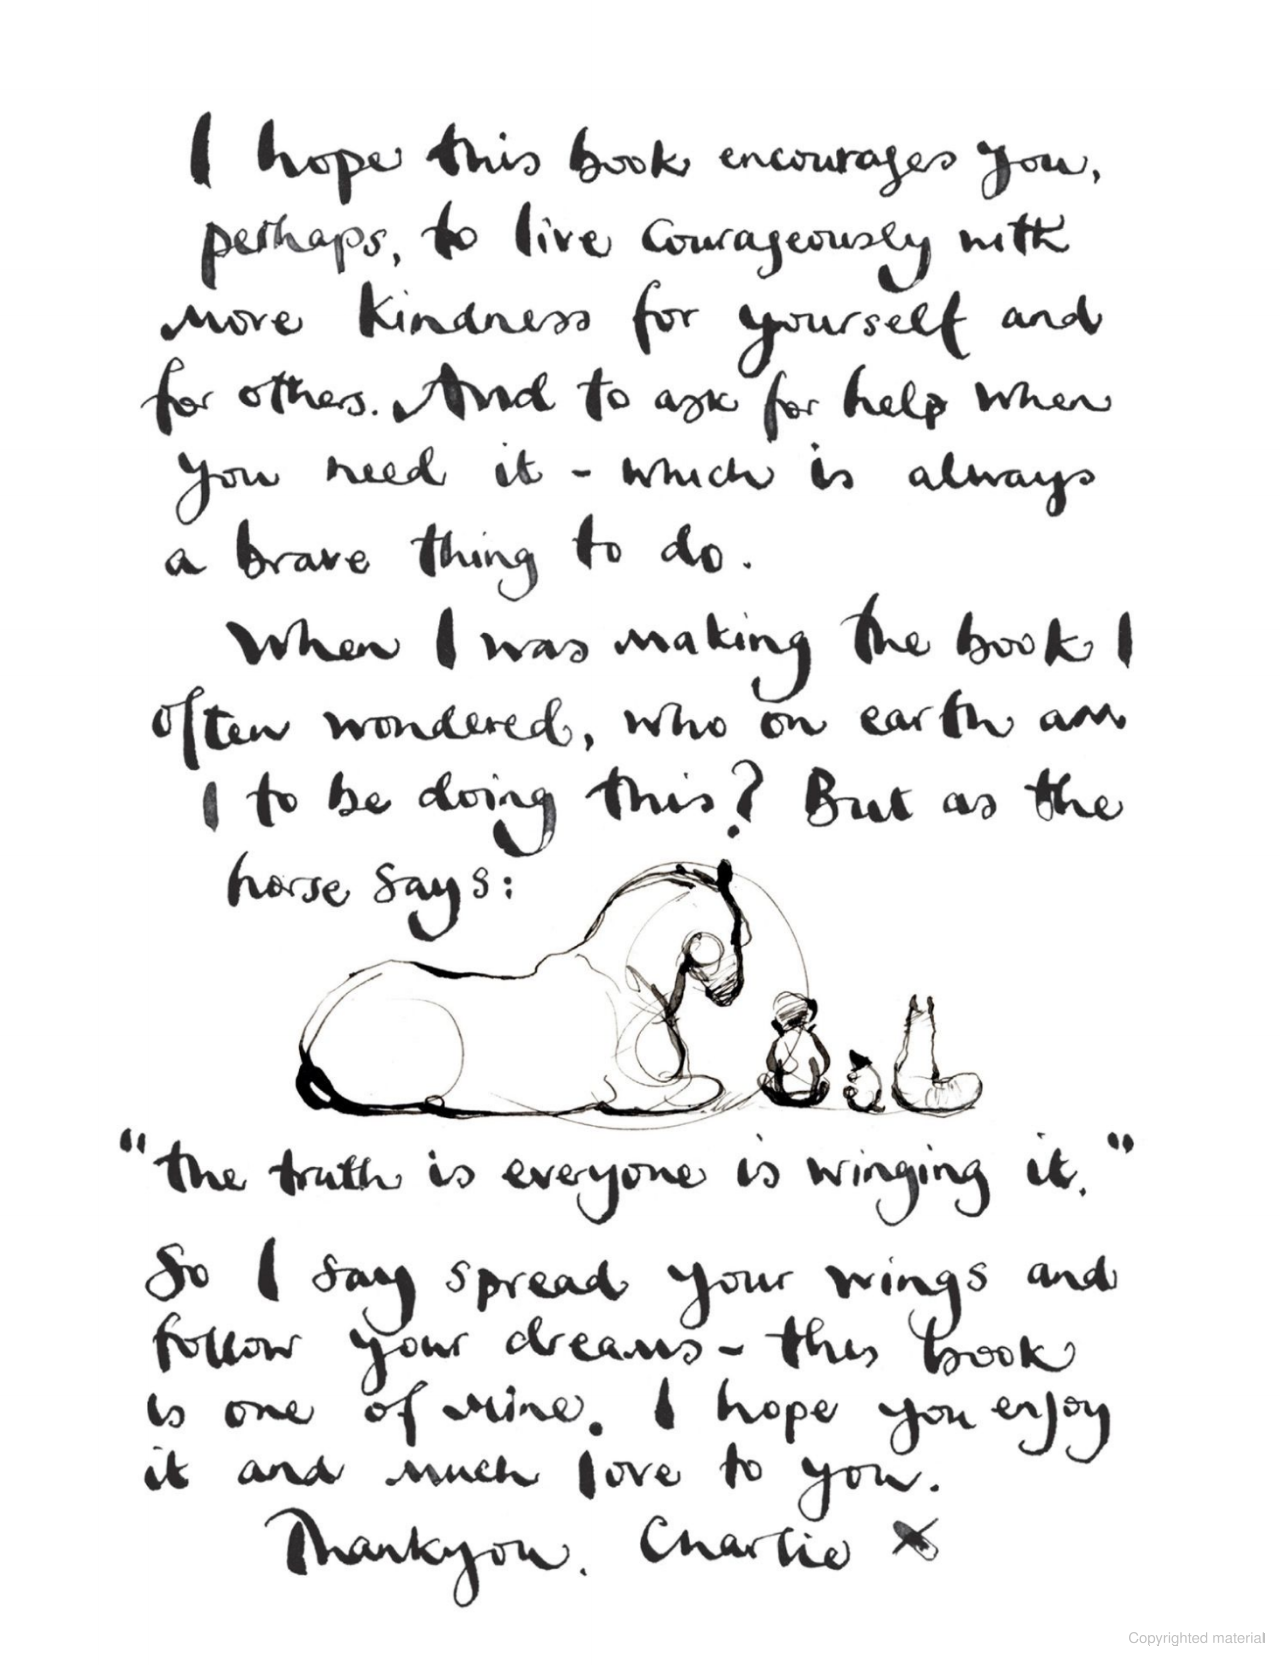 I hope this book encourages you,
perhaps, to live courageously with
more kindness for yourself and
for others. And to ask for help when
you need it - which is always
a brave thing to do.
When I was making the book I
often wondered, who on earth am
I to be doing this? But as the
horse says:
"the truth is everyone is winging it."
So I say spread your wings and
follow your dreams - this book
is one of mine. I hope you enjoy
it and much love to you.
Thankyou. Charlie x
Copyrighted material